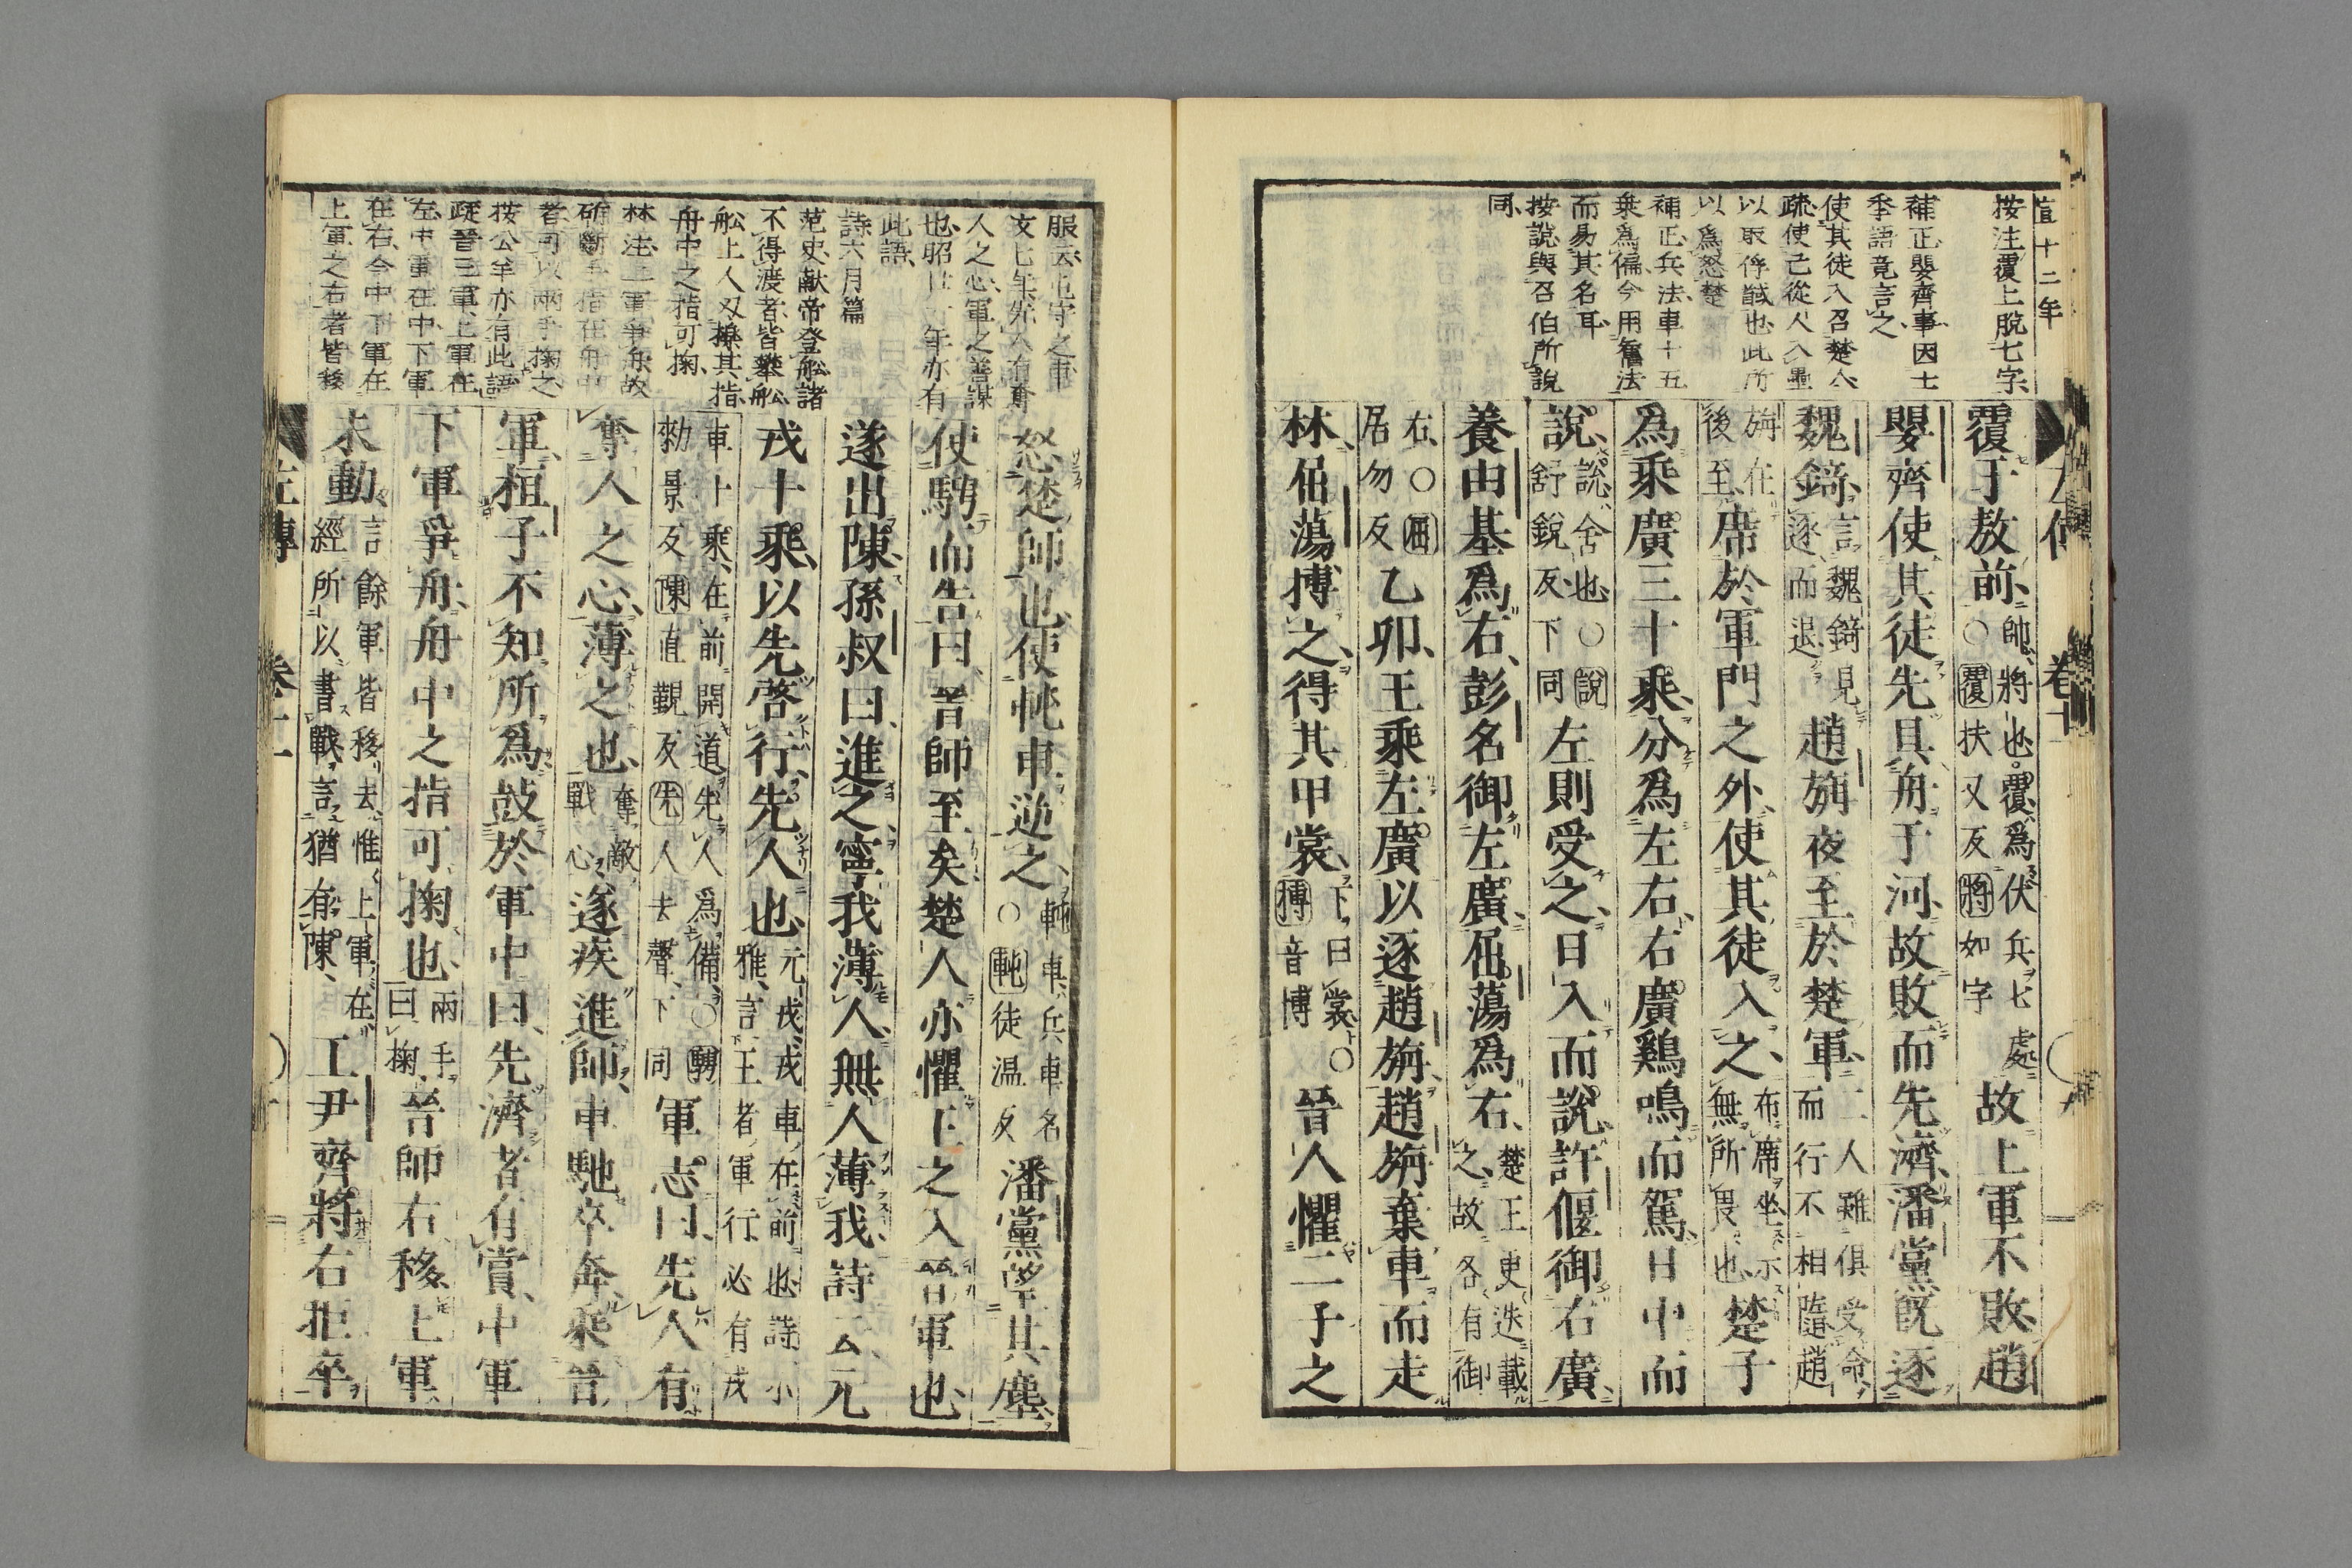 宣十二年
按注覆上脫七字
補正嬰齊事因士
季語竟言之
使其徒入召楚人
疏使己從人入壘
以取俘馘也此所
以爲怒楚
補正兵法車十五
乗爲偏今用舊法
而易其名耳
按說與召伯所說
同
覆于敖前帥將也覆爲伏兵七處○覆扶又反將如字故上軍不敗趙
嬰齊使其徒先具舟于河故敗而先濟潘黨旣逐
魏錡言魏錡見逐而退趙旃夜至於楚軍二人雖俱受命而行不相隨趙
旃在後至席於軍門之外使其徒入之布席坐示無所畏也楚子
爲乘廣三十乘分爲左右右廣鷄鳴而駕日中而
說說舍也○說舒銳反下同左則受之日入而說許偃御右廣
養由基爲右彭名御左廣屈蕩爲右楚王更迭載之故各有御
右○屈居勿反乙卯王乘左廣以逐趙旃趙旃棄車而走
林屈蕩搏之得其甲裳下曰裳○搏音博晉人懼二子之
服云
人之心軍之善謀
也昭廿一年亦有
此語
詩六月篇
范史獻帝登舩諸
不得渡者皆攀舩
舩上人刄櫟其指
舟中之指可掬
林注二軍爭舟故
斫斷手指在舟中
者可以兩手掬之
按公羊亦有此語
疑晉三軍上軍在
左中軍在中下軍
在右今中下軍在
上軍之右者皆移
怒楚師也使軘車逆之軘車兵車名○軘徒温反潘黨望其塵
使騁而告曰晉師至矣楚人亦懼王之入晉軍也
遂出陳孫叔曰進之寧我薄人無人薄我詩云元
戎十乘以先啓行先人也元戎戎車在前也詩小雅言王者軍行必有戎
車十乘在前開道先人爲備○騁勑景反陳直覲反先人去聲下同軍志曰先人有
奪人之心薄之也奪敵戰心遂疾進師車馳卒奔乘晉
軍桓子不知所爲鼓於軍中曰先濟者有賞中軍
下軍爭舟舟中之指可掬也兩手曰掬晉師右移上軍
未動言餘軍皆移去惟上軍在經所以書戰言猶有陳工尹齊將右拒卒
左傳 卷十一